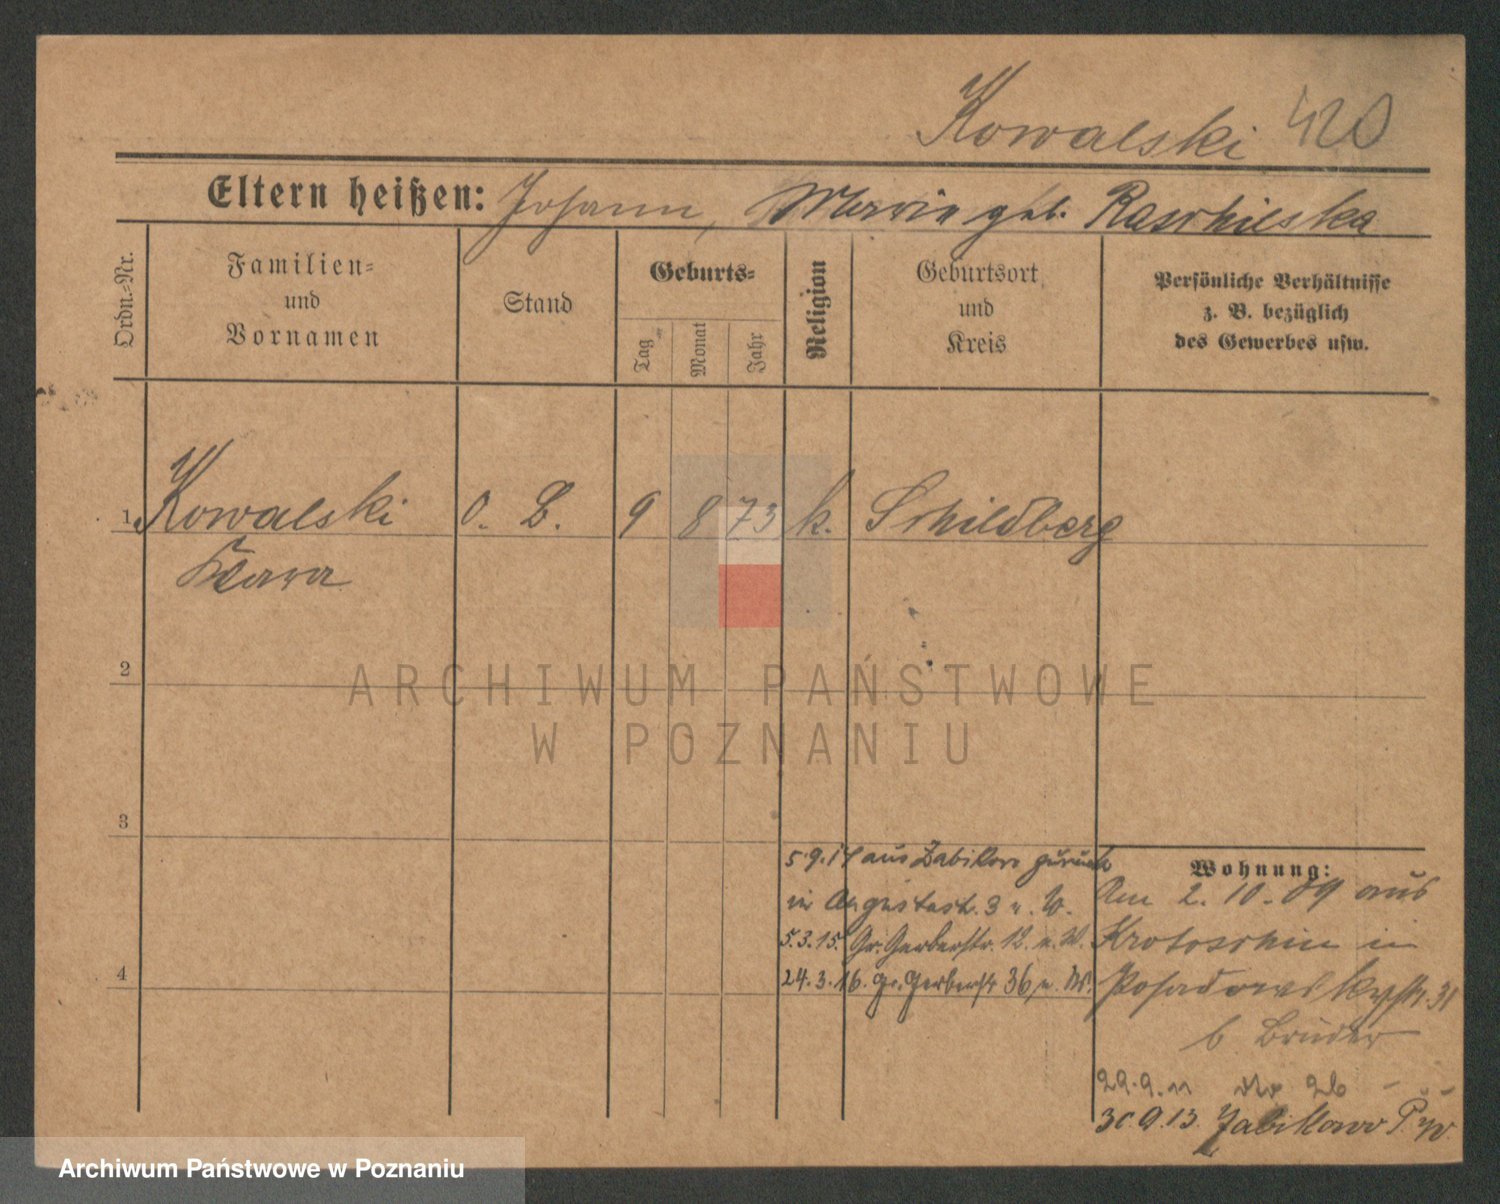 Kowalski 420
Eltern heißen: Johann, Maria geb. Raschilska
Ordn.=Nr.
Familien=
und
Vornamen
Stand
Geburts=
Tag
Monat
Jahr
Religion
Geburtsort
und
Kreis
Persönliche Verhältnisse
z. B. bezüglich
des Gewerbes usw.
1 Kowalski o. B. 9 8 73 k. Schildberg
Klara
2
ARCHIWUM PAŃSTWOWE
W POZNANIU
3
5.9.14 aus Zabikow zurück
in Augustastr. 3 u. W.
5.3.15. Gr. Gerberstr. 12. u. W.
4
24.3.16. Gr. Gerberstr 36, u. W.
Wohnung:
Am 2. 10. 09 aus
Krotoschin in
Posadowskystr. 31
b Bruder
29.9.11 26
30.9.13. Zabikowo P.W.
Archiwum Państwowe w Poznaniu